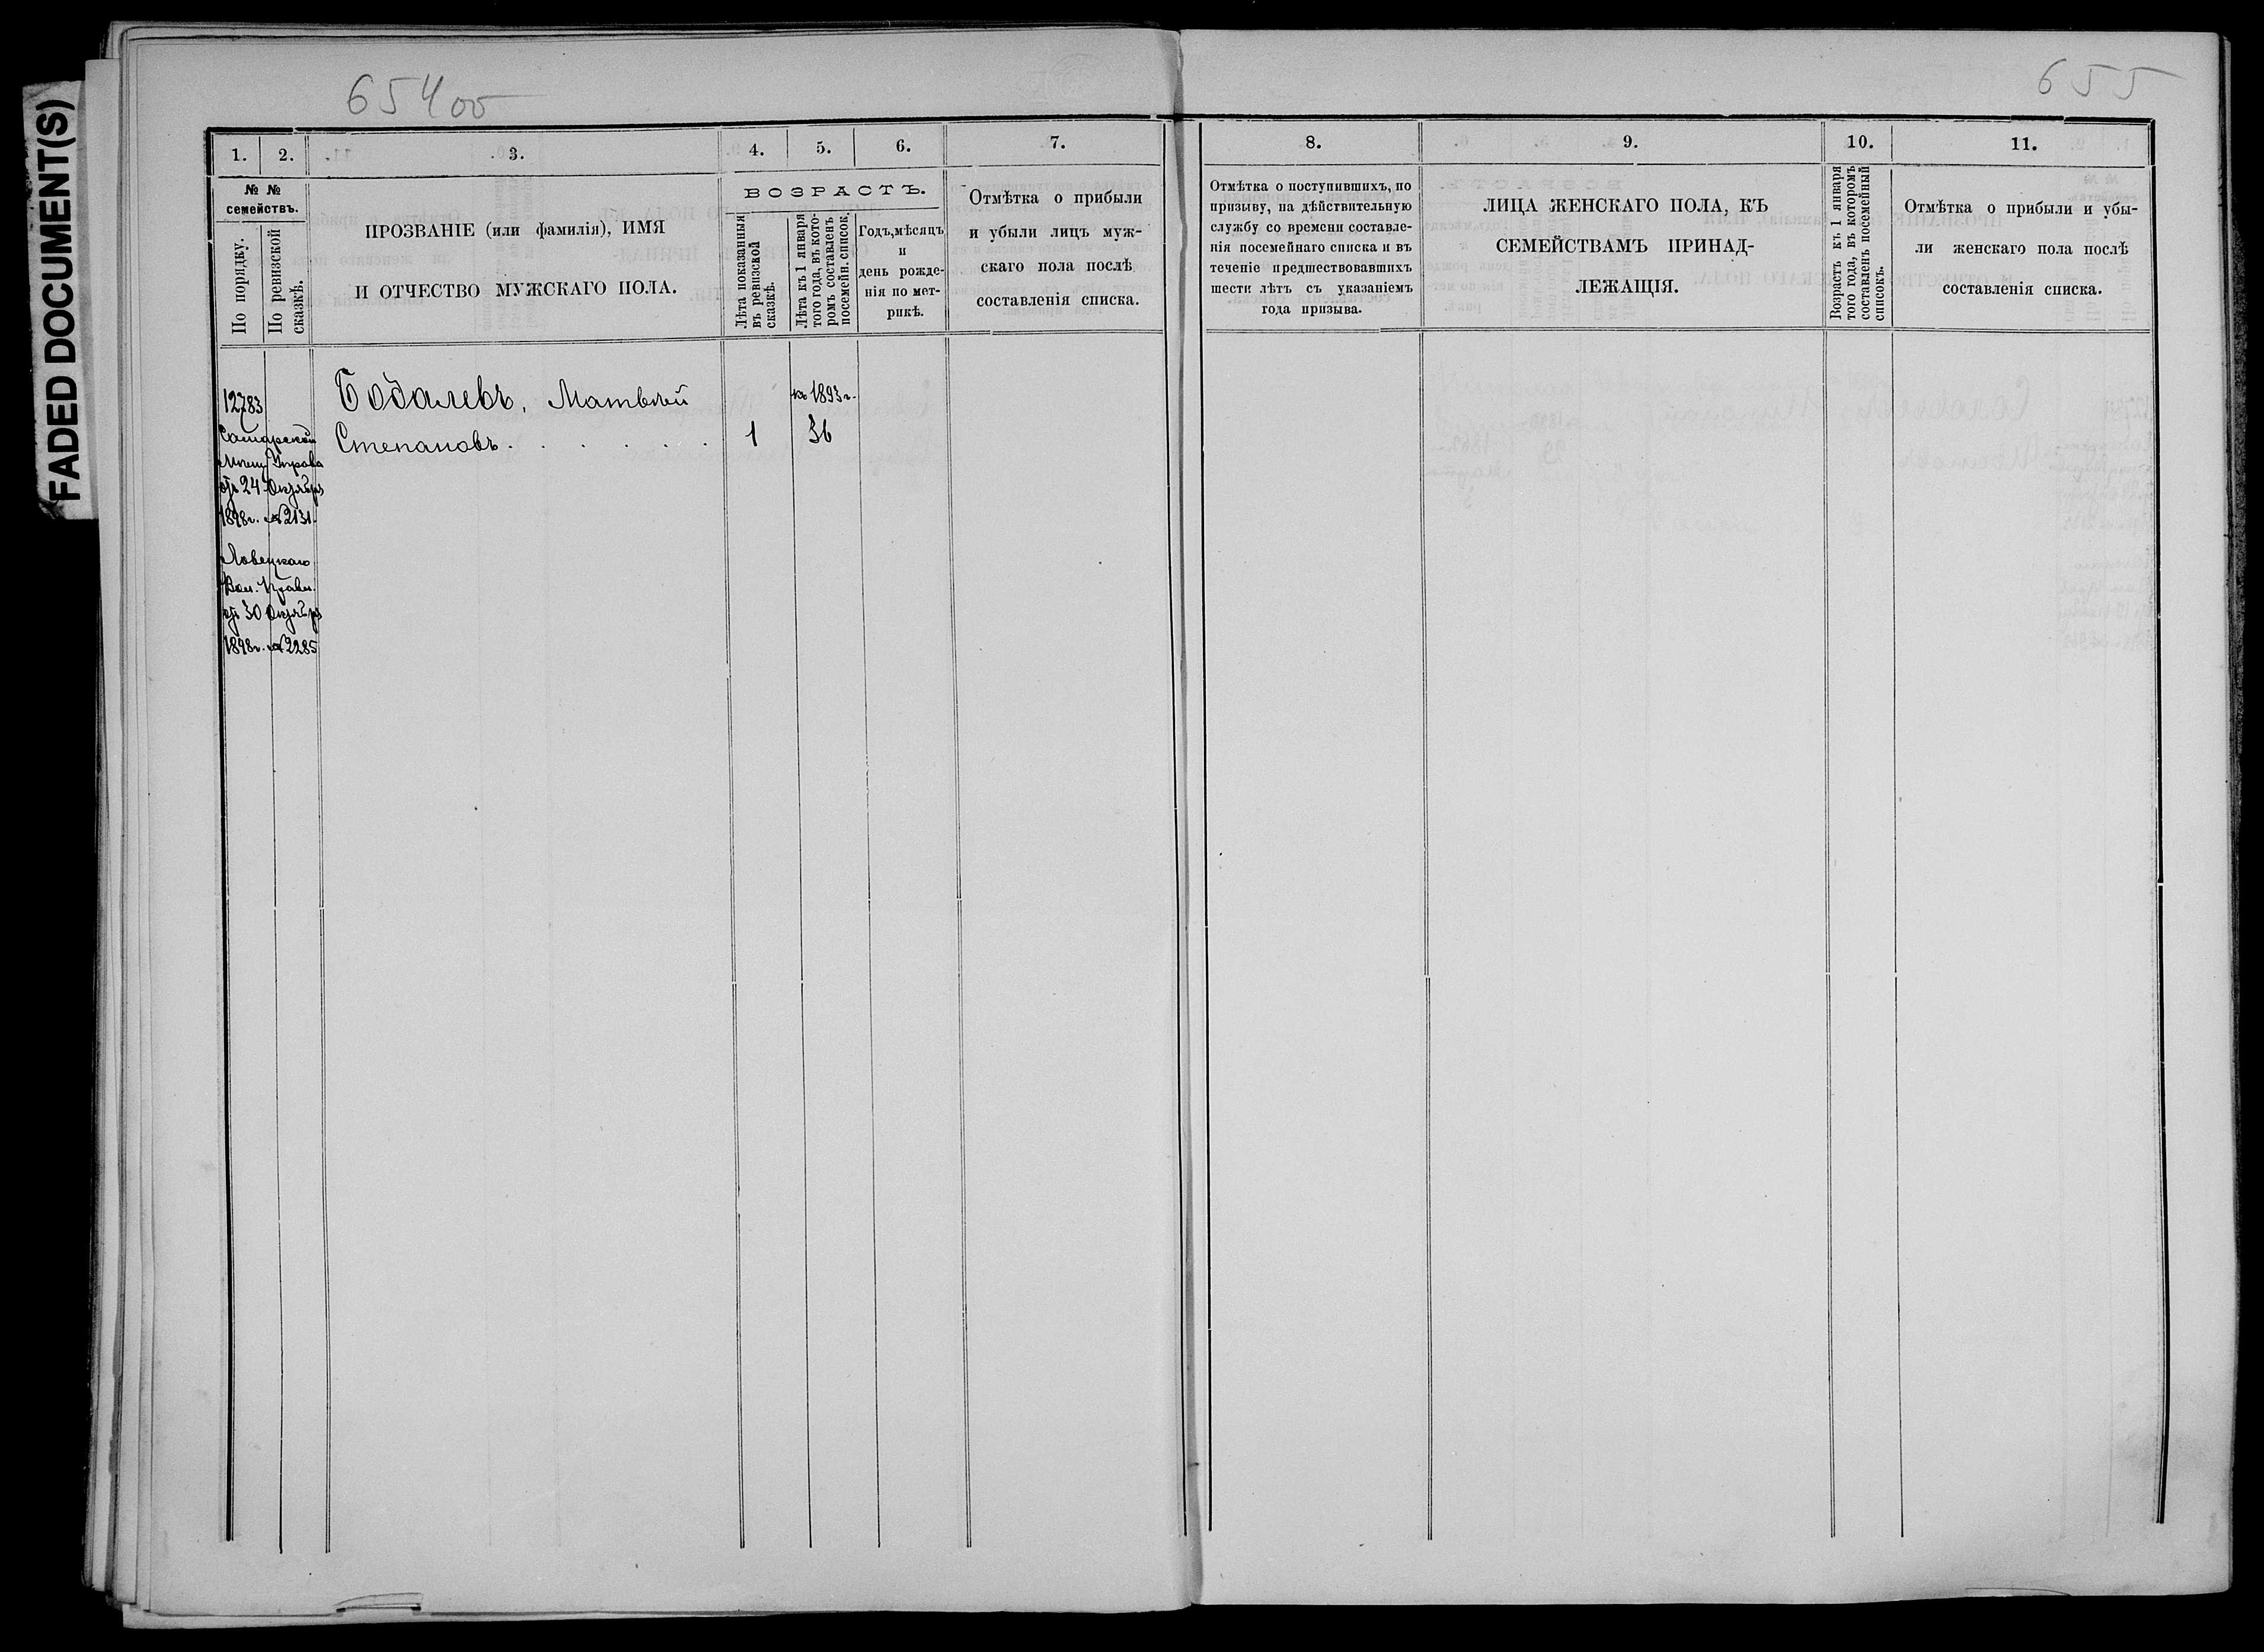 FADED DOCUMENT(S)
654 об
655
1. 2. 3. 4. 5. 6. 7.
№ №
семействъ.
По порядку.
По ревизской
сказкѣ.
ПРОЗВАНІЕ (или фамилія), ИМЯ
И ОТЧЕСТВО МУЖСКАГО ПОЛА.
ВОЗРАСТЪ.
Лѣта показанныя
въ ревизской
сказкѣ.
Лѣта къ 1 января
того года, въ кото-
ромъ составленъ
посемейн. списокъ.
Годъ, мѣсяцъ
и
день рожде-
нія по мет-
рикѣ.
Отмѣтка о прибыли
и убыли лицъ муж-
скаго пола послѣ
составленія списка.
12783
Самарской
Мѣщ. Управа
отъ 24 Октября
1898 г. № 2131.
Ловецкаго
Вол. Правл.
отъ 30 Октября
1898 г. № 2285
Бодалевъ, Матвѣй
Степановъ . . . . . .
1
къ 1893 г.
36
8. 9. 10. 11.
Отмѣтка о поступившихъ, по
призыву, на дѣйствительную
службу со времени составле-
нія посемейнаго списка и въ
теченіе предшествовавшихъ
шести лѣтъ съ указаніемъ
года призыва.
ЛИЦА ЖЕНСКАГО ПОЛА, КЪ
СЕМЕЙСТВАМЪ ПРИНАД-
ЛЕЖАЩІЯ.
Возрастъ къ 1 января
того года, въ которомъ
составленъ посемейный
списокъ.
Отмѣтка о прибыли и убы-
ли женскаго пола послѣ
составленія списка.